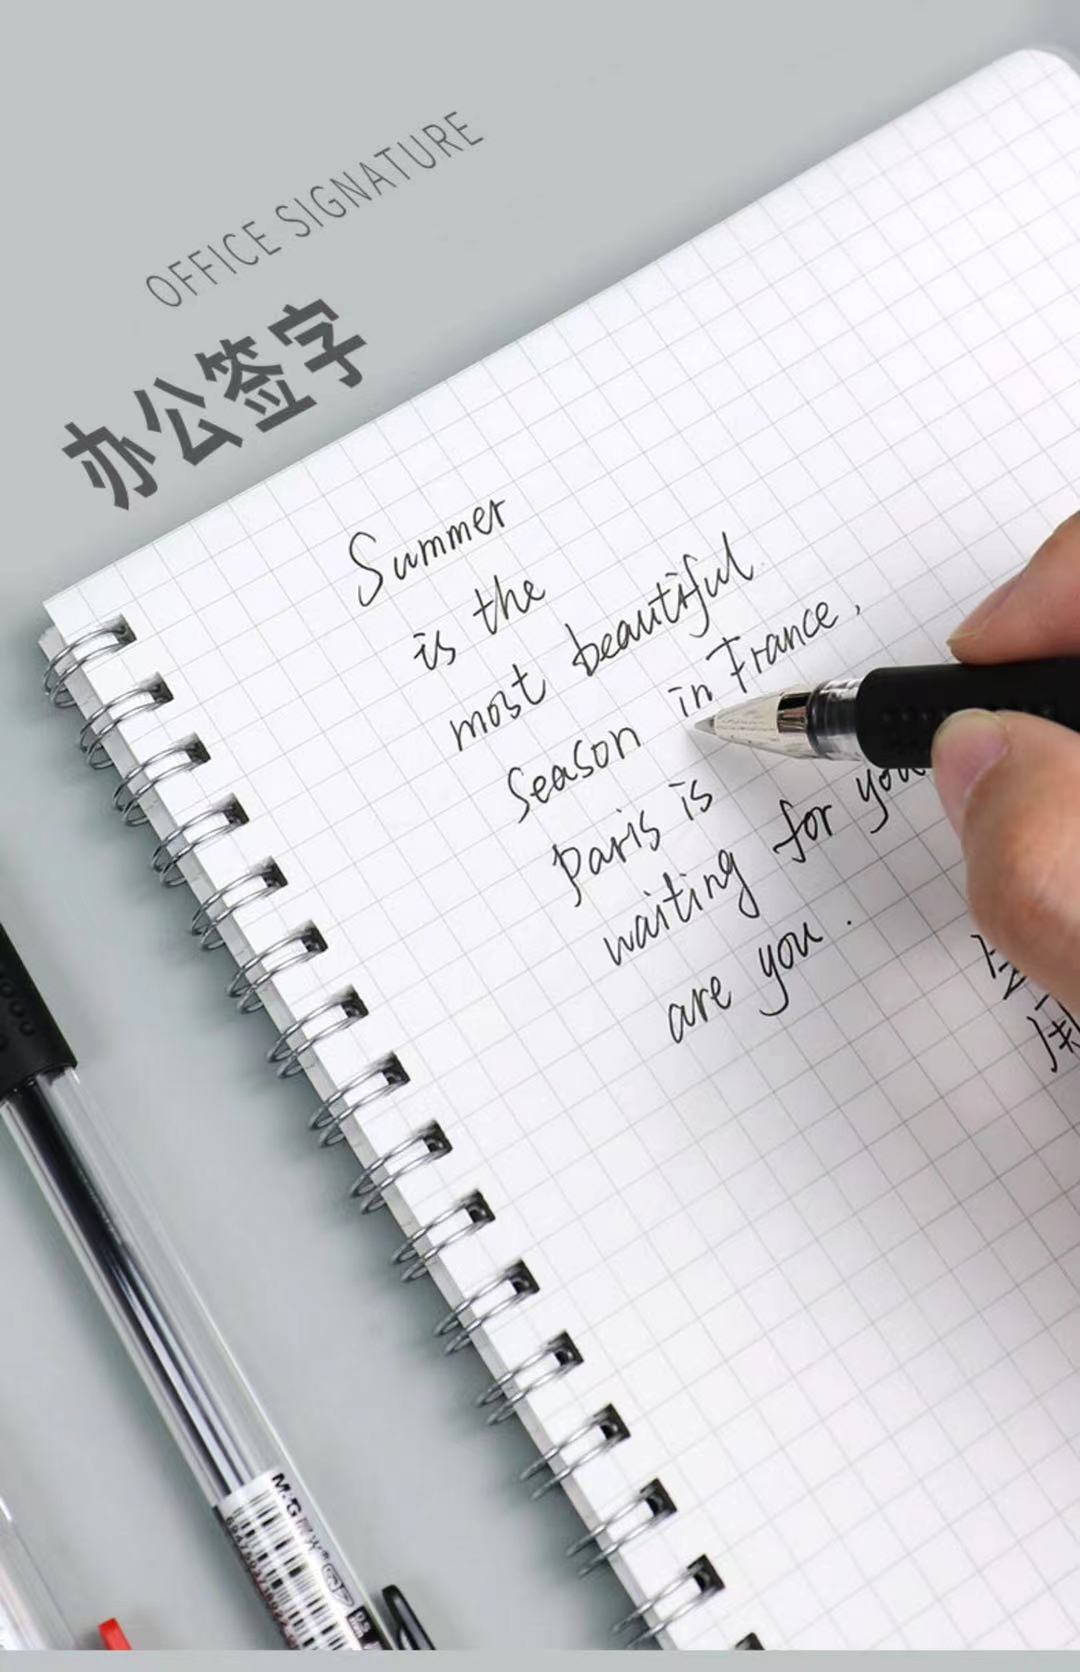 OFFICE SIGNATURE
办公签字
Summer
is the
most beautiful
season in France,
Paris is
waiting for you
are you.
M&G